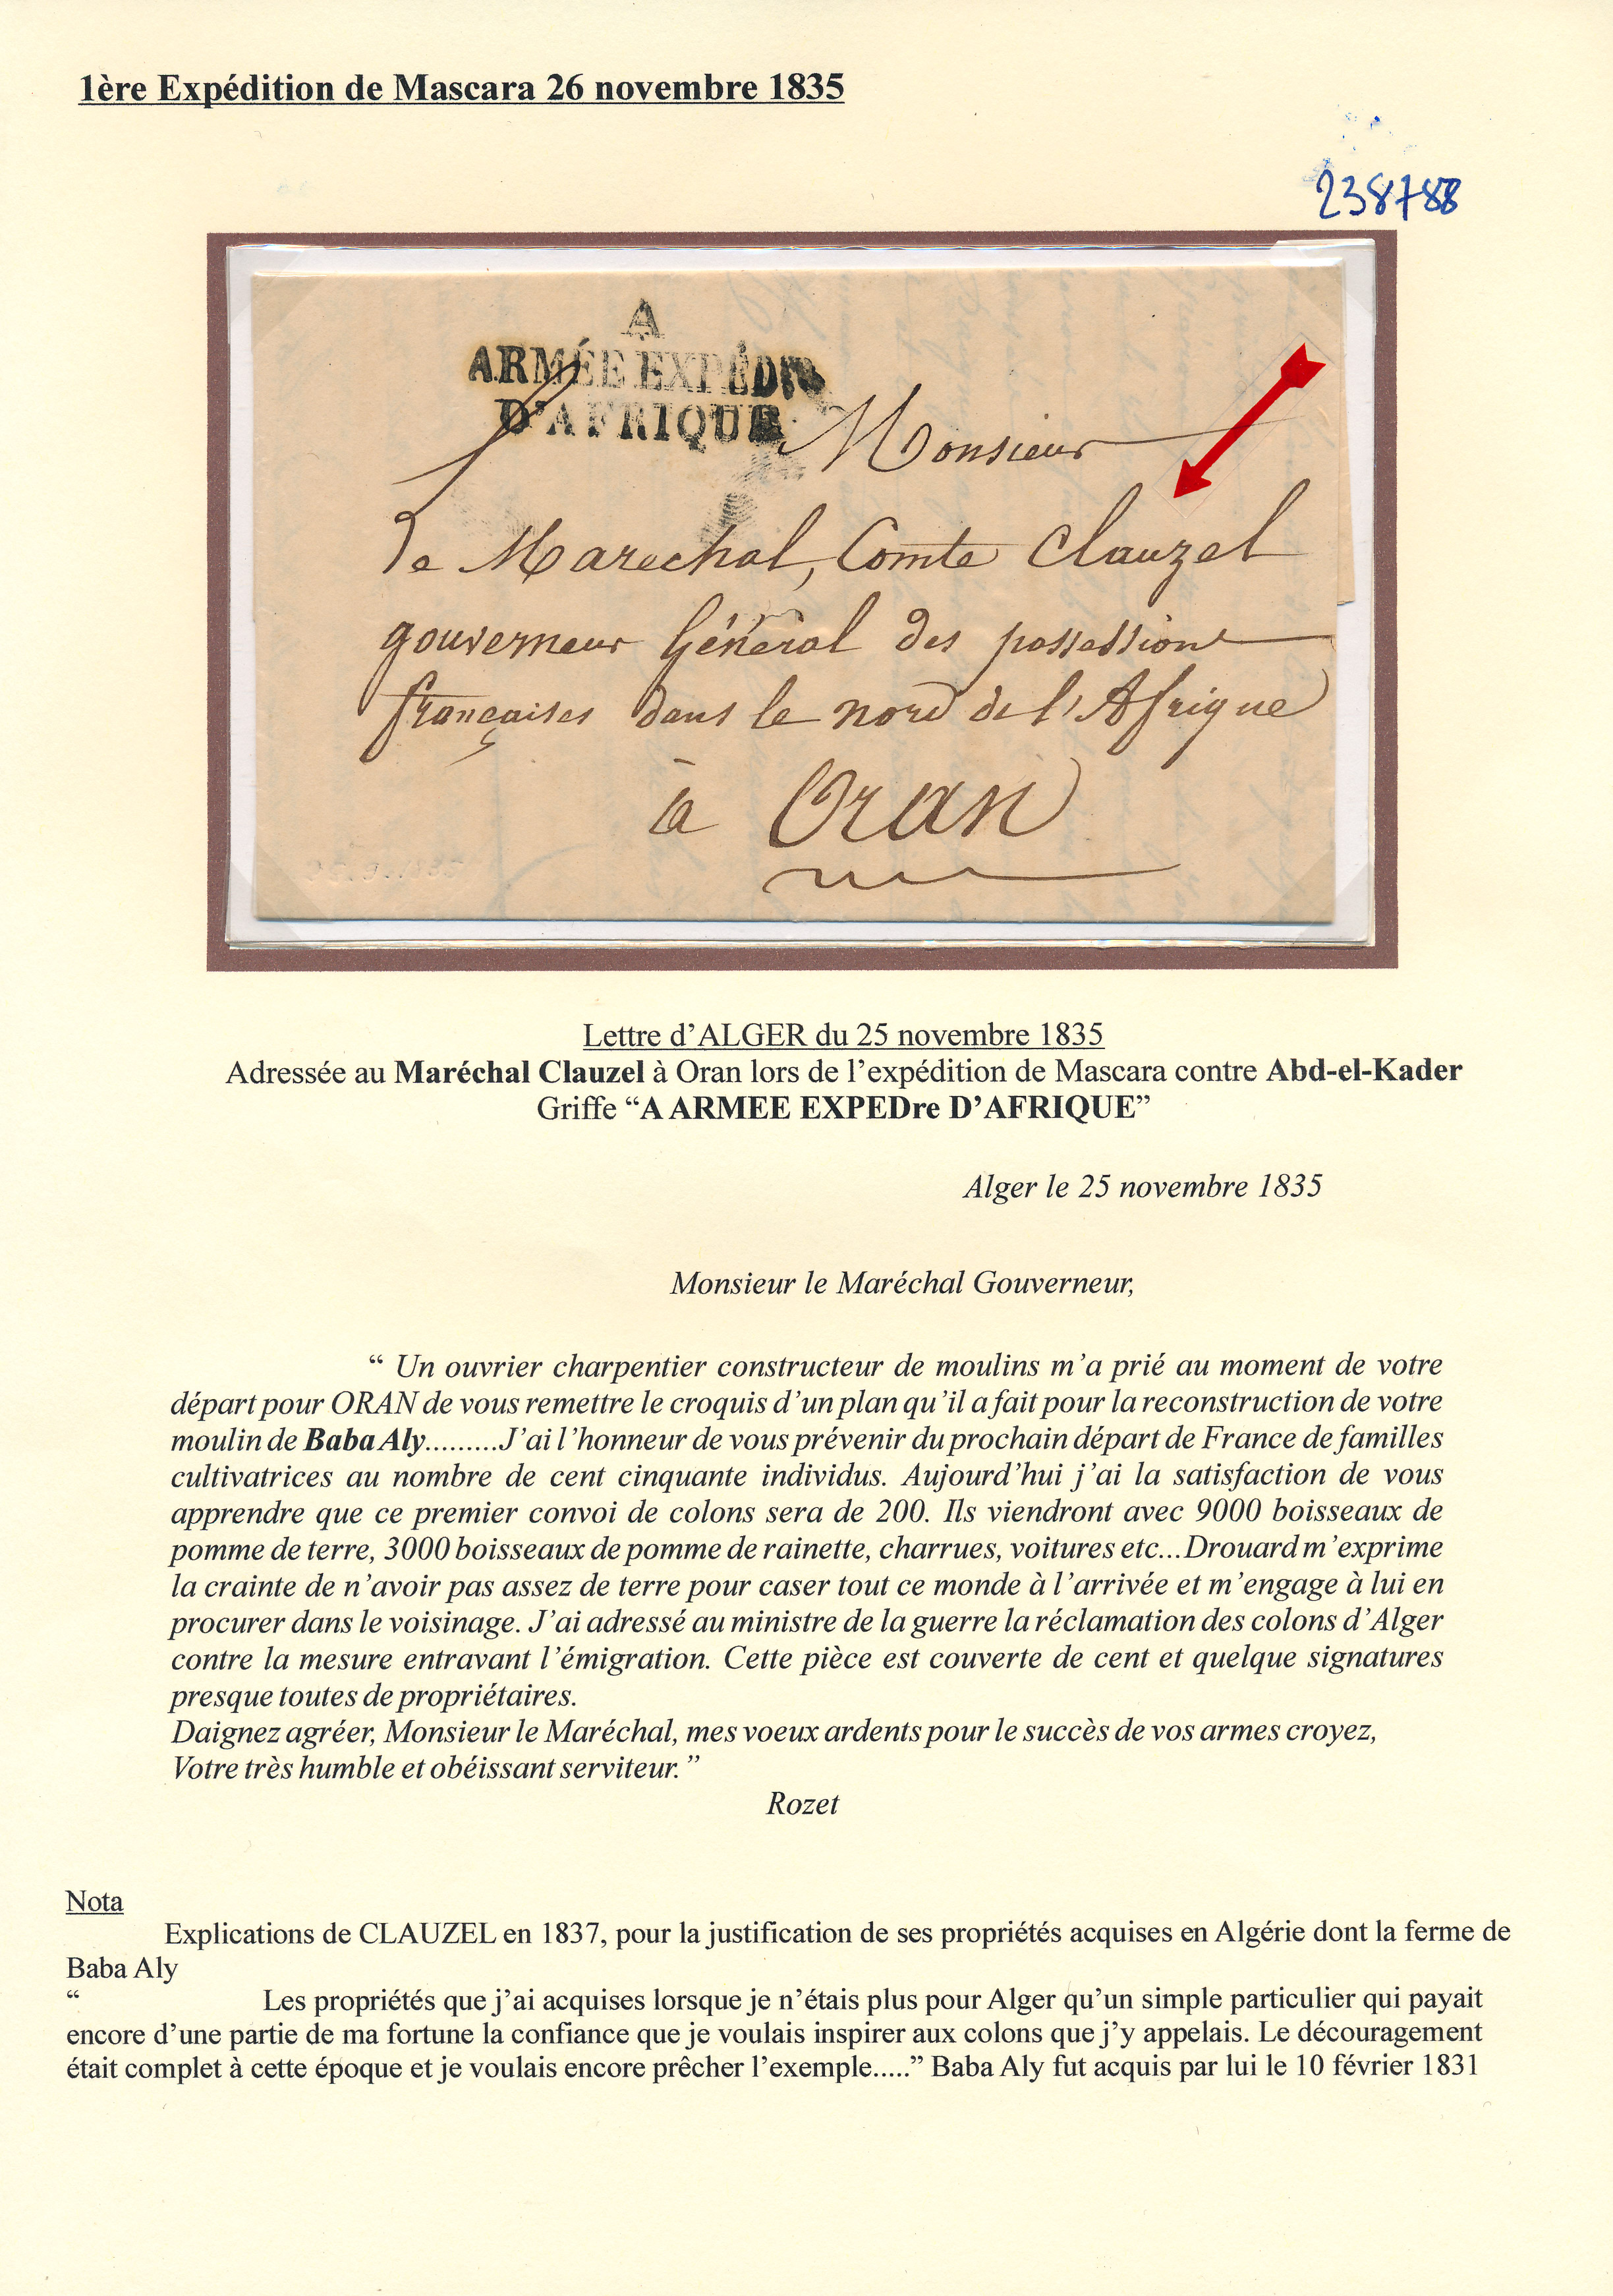 1ère Expédition de Mascara 26 novembre 1835
238788
A
ARMÉE EXPÉD
D'AFRIQUE
Monsieur
le Marechal, Comte Clauzel
gouverneur Général des possessions
françaises dans le nord de l'Afrique
à Oran
Lettre d'ALGER du 25 novembre 1835
Adressée au Maréchal Clauzel à Oran lors de l'expédition de Mascara contre Abd-el-Kader
Griffe “A ARMEE EXPEDre D'AFRIQUE”
Alger le 25 novembre 1835
Monsieur le Maréchal Gouverneur,
“ Un ouvrier charpentier constructeur de moulins m'a prié au moment de votre
départ pour ORAN de vous remettre le croquis d'un plan qu'il a fait pour la reconstruction de votre
moulin de Baba Aly.........J'ai l'honneur de vous prévenir du prochain départ de France de familles
cultivatrices au nombre de cent cinquante individus. Aujourd'hui j'ai la satisfaction de vous
apprendre que ce premier convoi de colons sera de 200. Ils viendront avec 9000 boisseaux de
pomme de terre, 3000 boisseaux de pomme de rainette, charrues, voitures etc...Drouard m'exprime
la crainte de n'avoir pas assez de terre pour caser tout ce monde à l'arrivée et m'engage à lui en
procurer dans le voisinage. J'ai adressé au ministre de la guerre la réclamation des colons d'Alger
contre la mesure entravant l'émigration. Cette pièce est couverte de cent et quelque signatures
presque toutes de propriétaires.
Daignez agréer, Monsieur le Maréchal, mes voeux ardents pour le succès de vos armes croyez,
Votre très humble et obéissant serviteur. ”
Rozet
Nota
Explications de CLAUZEL en 1837, pour la justification de ses propriétés acquises en Algérie dont la ferme de
Baba Aly
“ Les propriétés que j'ai acquises lorsque je n'étais plus pour Alger qu'un simple particulier qui payait
encore d'une partie de ma fortune la confiance que je voulais inspirer aux colons que j'y appelais. Le découragement
était complet à cette époque et je voulais encore prêcher l'exemple.....” Baba Aly fut acquis par lui le 10 février 1831